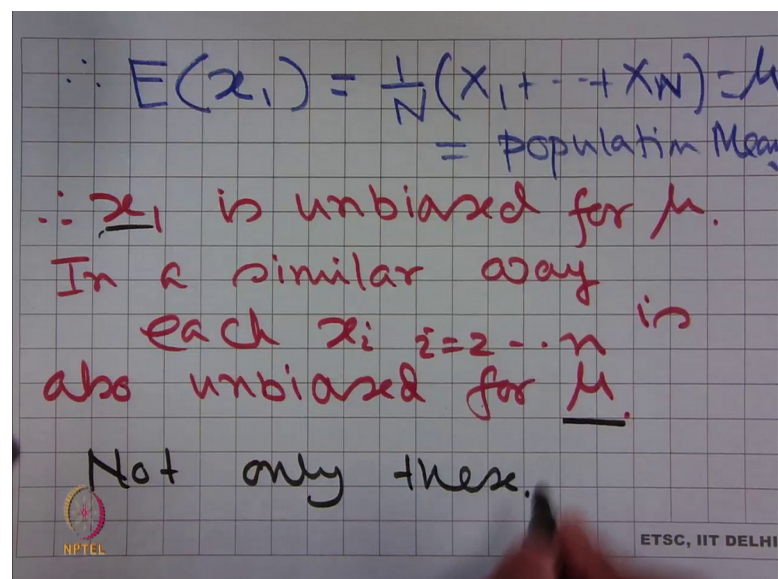 ∴ E(x₁) = 1/N (X₁ + -- + X_N) = μ
= populatim Mean
∴ x₁ is unbiased for μ.
In a similar way
each xᵢ i=2 -- n is
also unbiased for μ.
Not only these.
NPTEL
ETSC, IIT DELHI